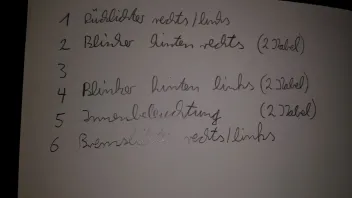 1 Rücklichter rechts/links
2 Blinker hinten rechts (2 Kabel)
3
4 Blinker hinten links (2 Kabel)
5 Innenbeleuchtung (2 Kabel)
6 rechts/links